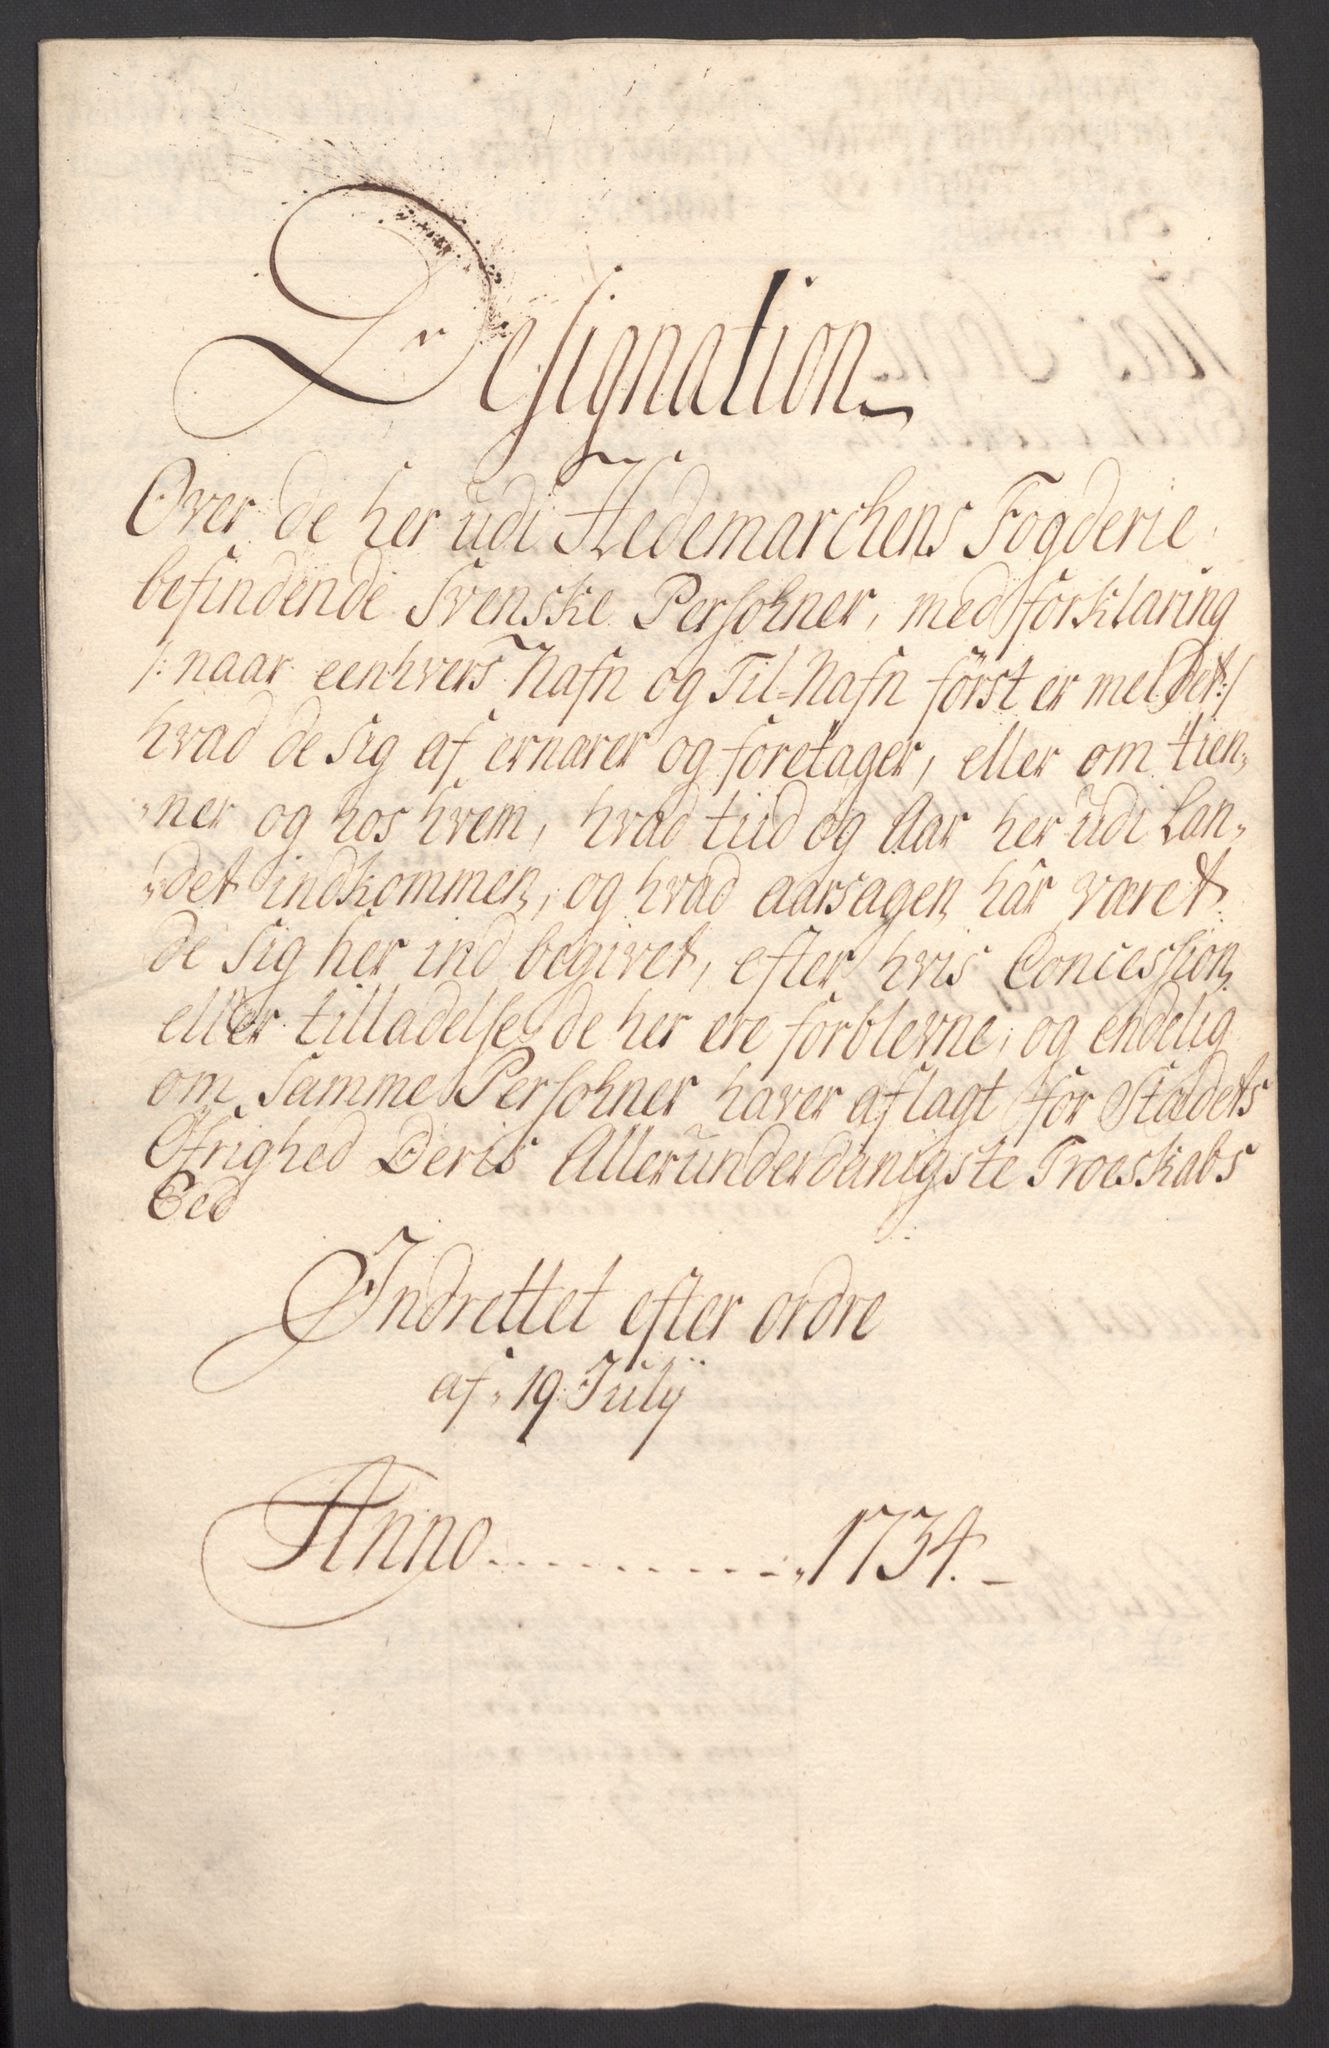 Designation
Over de her udi Hedemarchens Fogderie
befindende Svenske Persohner, med forklaring
/: naar eenhvers Nafn og Til-Nafn först er meldet :/
hvad de sig af ernærer og foretager, eller om tien,,
,,ner og hos hvem, hvad tiid og Aar her udi Lan,,
,,det indkommen, og hvad aarsagen har været
de sig her ind begivet, efter hvis Concession
eller tilladelse de her ere forblevne, og endelig
om samme Persohner haver aflagt for Stædets
Øfrighed Deris Allerunderdanigste Troeskabs
Eed
Indrettet efter ordre
af 19 Julij
Anno . . . . . . . . . 1734. –